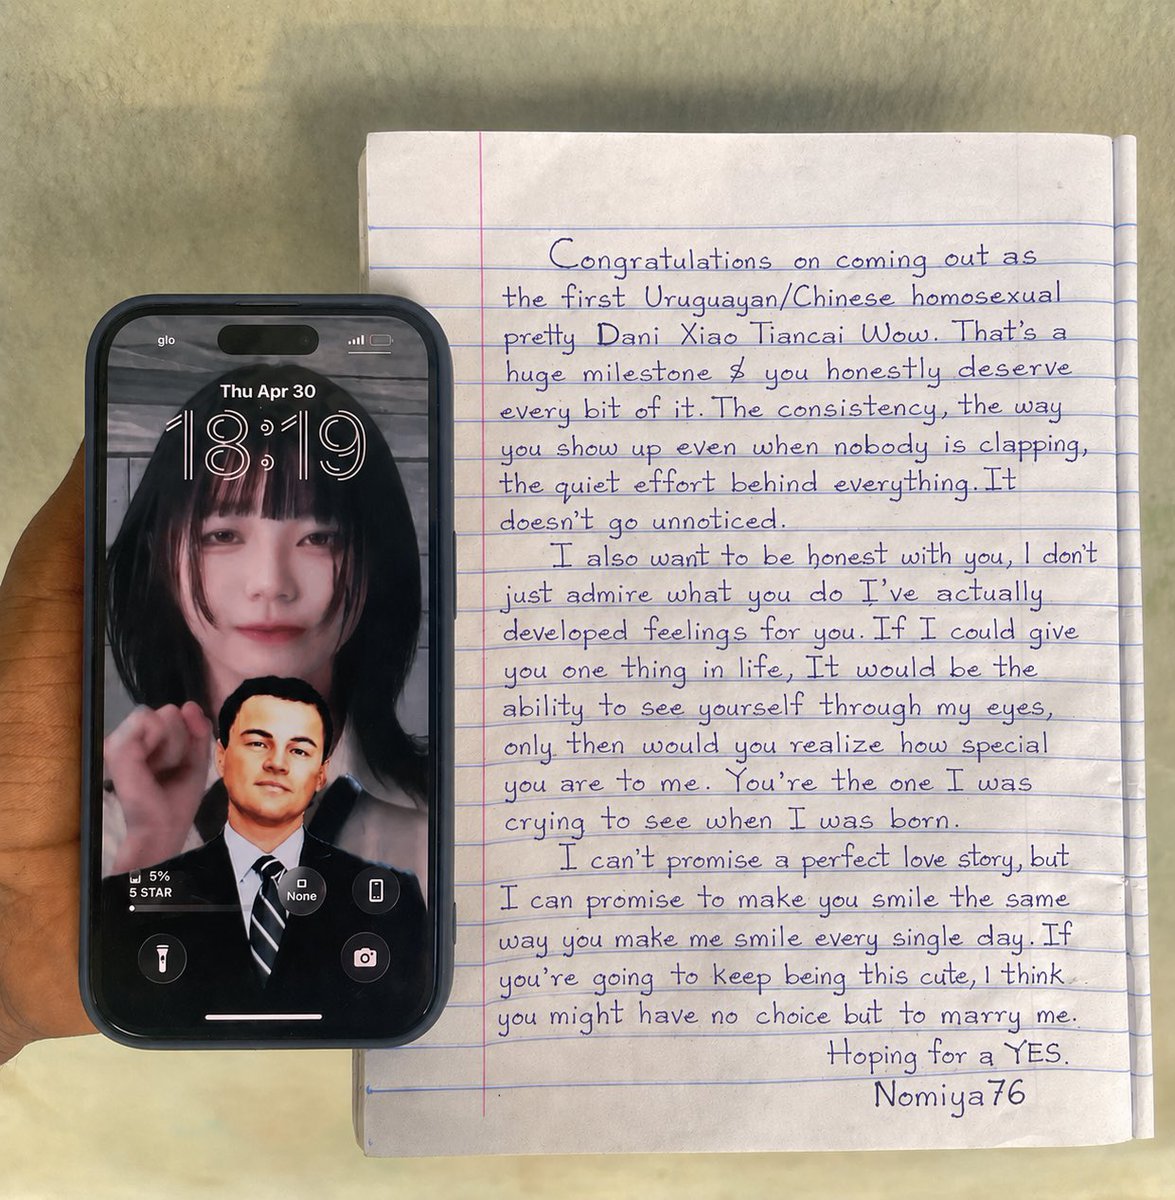 glo
Thu Apr 30
18:19
5%
5 STAR
None
Congratulations on coming out as
the first Uruguayan/Chinese homosexual
pretty Dani Xiao Tiancai Wow. That's a
huge milestone & you honestly deserve
every bit of it. The consistency, the way
you show up even when nobody is clapping,
the quiet effort behind everything. It
doesn't go unnoticed.
I also want to be honest with you, I don't
just admire what you do I've actually
developed feelings for you. If I could give
you one thing in life, It would be the
ability to see yourself through my eyes,
only then would you realize how special
you are to me. You're the one I was
crying to see when I was born.
I can't promise a perfect love story, but
I can promise to make you smile the same
way you make me smile every single day. If
you're going to keep being this cute, I think
you might have no choice but to marry me.
Hoping for a YES.
Nomiya76